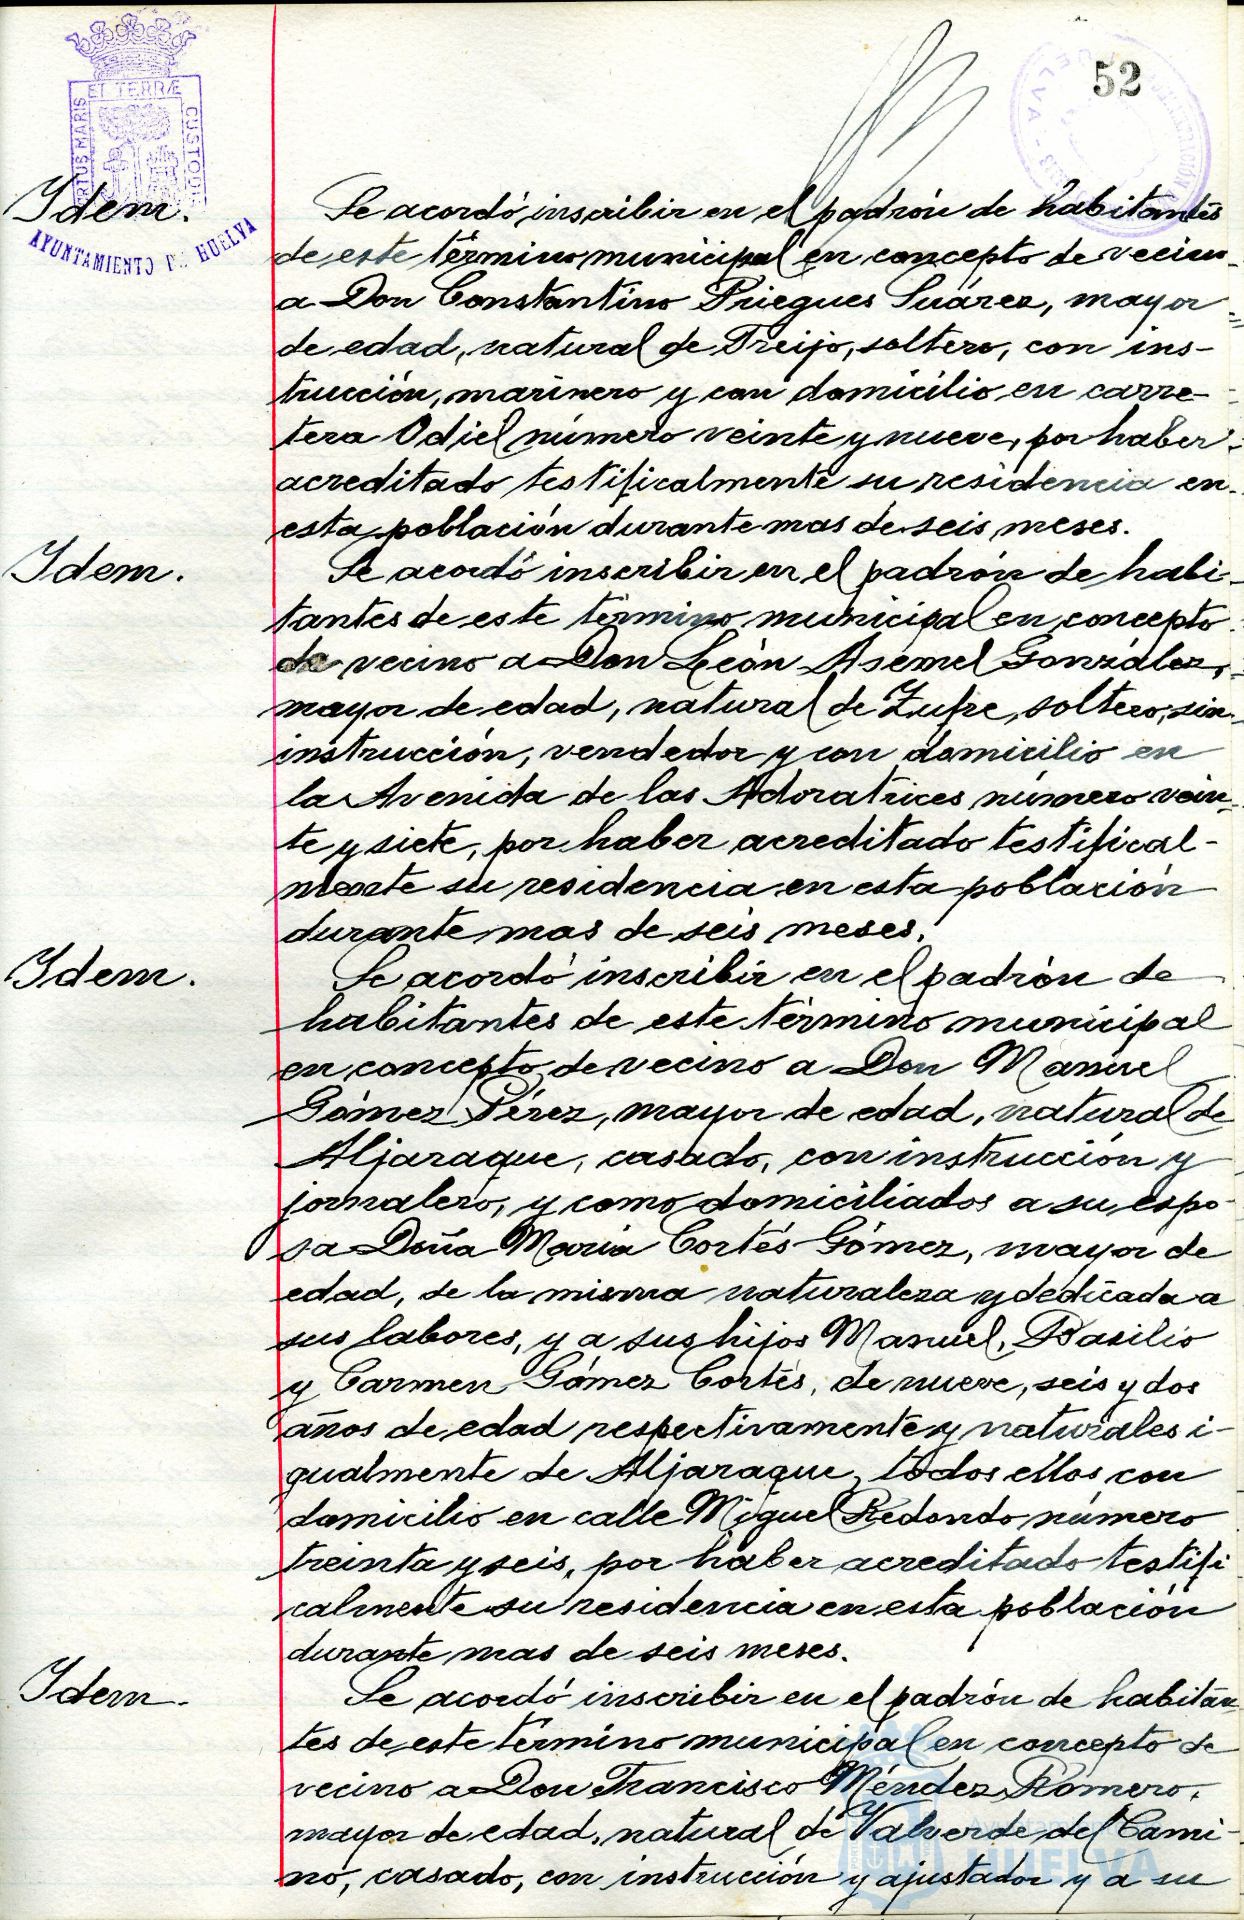 52
ET TERRÆ
PORTUS MARIS
CUSTODI
AYUNTAMIENTO DE HUELVA
Idem.
Se acordó inscribir en el padrón de habitantes
de este término municipal en concepto de vecino
a Don Constantino Priegues Suárez, mayor
de edad, natural de Treijo, soltero, con ins-
trucción, marinero y con domicilio en carre-
tera Odiel número veinte y nueve, por haber
acreditado testificalmente su residencia en
esta población durante mas de seis meses.
Idem.
Se acordó inscribir en el padrón de habi-
tantes de este término municipal en concepto
de vecino a Don León Asémel González,
mayor de edad, natural de Zufre, soltero, sin
instrucción, vendedor y con domicilio en
la Avenida de las Adoratrices número vein-
te y siete, por haber acreditado testifical-
mente su residencia en esta población
durante mas de seis meses.
Idem.
Se acordó inscribir en el padrón de
habitantes de este término municipal
en concepto de vecino a Don Manuel
Gómez Pérez, mayor de edad, natural de
Aljaraque, casado, con instrucción y
jornalero, y como domiciliados a su espo-
sa Doña María Cortés Gómez, mayor de
edad, de la misma naturaleza y dedicada a
sus labores, y a sus hijos Manuel, Basilio
y Carmen Gómez Cortés, de nueve, seis y dos
años de edad respectivamente y naturales i-
gualmente de Aljaraque, todos ellos con
domicilio en calle Miguel Redondo número
treinta y seis, por haber acreditado testifi
calmente su residencia en esta población
durante mas de seis meses.
Idem.
Se acordó inscribir en el padrón de habitan
tes de este término municipal en concepto de
vecino a Don Francisco Méndez Romero,
mayor de edad, natural de Valverde del Cami-
no, casado, con instrucción y ajustador y a su
HUELVA